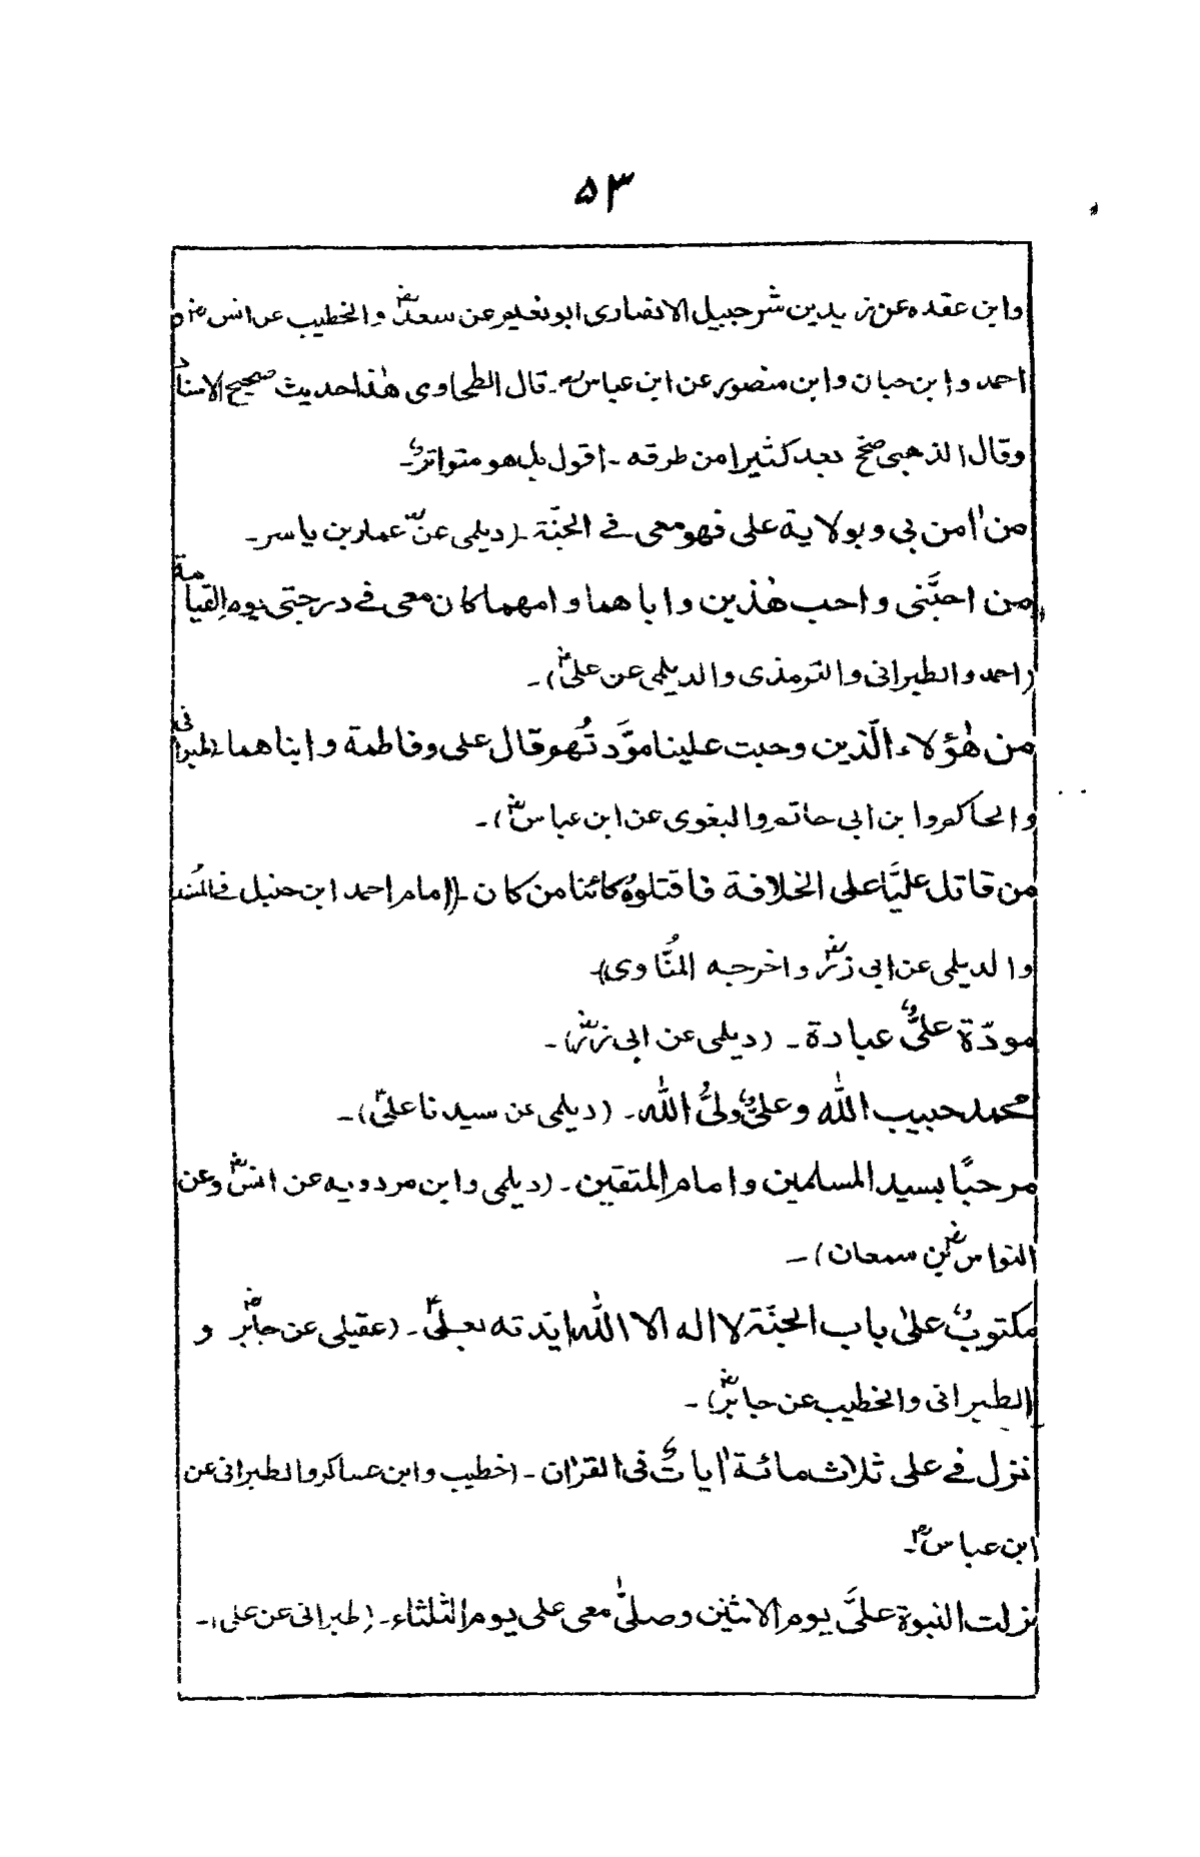 ۵۳
وابن عقده عن زيد بن شرجبيل الانصاری ابو نعیم عن سعدؓ والخطیب عن انسؓ و
احمد وابن حبان وابن منصور عن ابن عباسؓ۔ قال الطحاوی هٰذا حدیث صحیح الاسناد
وقال الذهبی صحّ بعد کثیرا من طرقه ۔ اقول بل هو متواترٌ۔
من اٰمن بی وبولایة علی فهو معی فے الجنّة ۔ (دیلمی عن عمار بن یاسرؓ۔
من احبَّنی واحب هٰذین واباهما وامهما کان معی فے درجتی یوم القیامة
(احمد والطبرانی والترمذی والدیلمی عن علیؓ)۔
من هٰؤلاء الّذین وجبت علینا موَّدتُهم قال علی وفاطمة وابناهما (طبرانی
والحاکم وابن ابی حاتم والبغوی عن ابن عباسؓ)۔
من قاتل علیًّا علی الخلافة فاقتلوهُ کائنا من کان ۔ (امام احمد ابن حنبل فے المُسند
والدیلمی عن ابی ذرؓ واخرجه المُنّاوی)
مودّة علیٍّ عبادة ۔ (دیلمی عن ابی ذرؓ)۔
محمد حبیب اللّٰه وعلیٌّ ولیُّ اللّٰه ۔ (دیلمی عن سیدنا علیؓ)۔
مرحبًا بسید المسلمین وامام المتقین ۔ (دیلمی وابن مردویه عن انسؓ وعن
النواسؓ بن سمعان)۔
مکتوبٌ علیٰ باب الجنّة لا اله الا اللّٰه ایّدته بعلیؓ ۔ (عقیلی عن جابرؓ و
الطبرانی والخطیب عن جابرؓ)۔
نزل فے علی ثلاث مائة اٰیاتٌ فی القراٰن ۔ (خطیب وابن عساکر والطبرانی عن
ابن عباسؓ۔
نزلت النبوة علیَّ یوم الاثنین وصلّٰی معی علی یوم الثلثاء۔ (طبرانی عن علی)۔